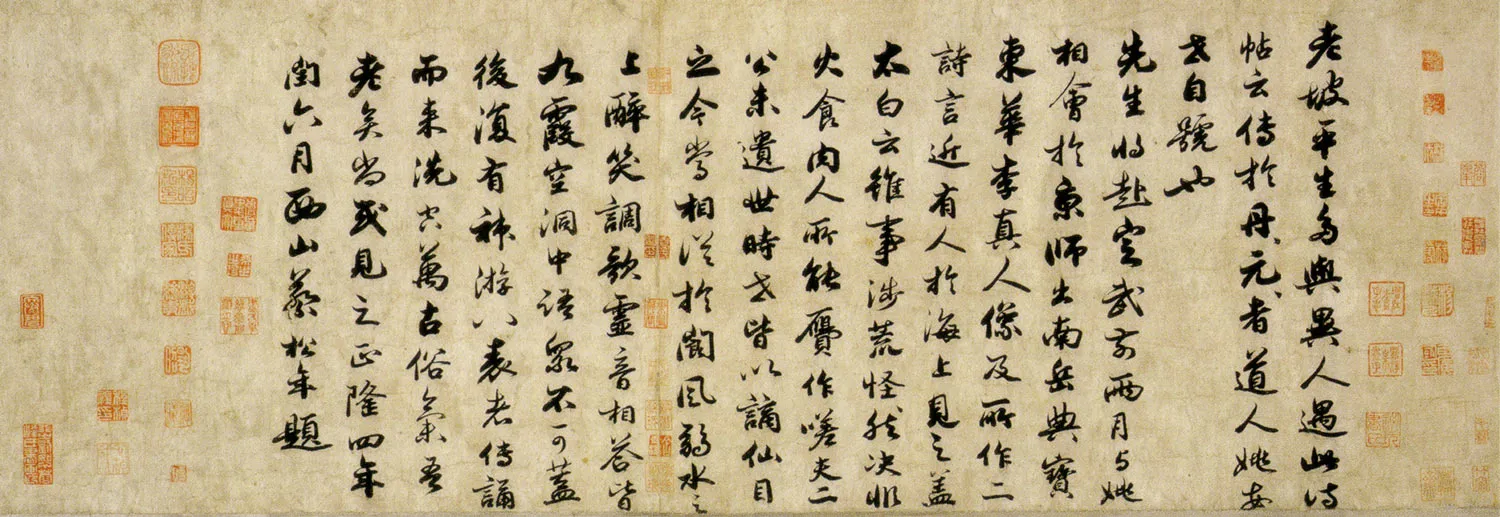 老坡平生多與異人遇此詩
帖云傳於丹元者道人姚安
世自號也
先生將赴定武前兩月與姚
相會於京師出南岳典寶
東華李真人像及所作二
詩言近有人於海上見之蓋
太白云雖事涉荒怪然決非
火食肉人所能贗作嗟夫二
公未遺世時世皆以謫仙目
之今當相從於閬風弱水之
上醉笑調歌靈音相答皆
九霞空洞中語眾不可蓋
後復有神游八表者傳誦
而來洗空萬古俗氣吾
老矣尚或見之正隆四年
閏六月西山蔡松年題